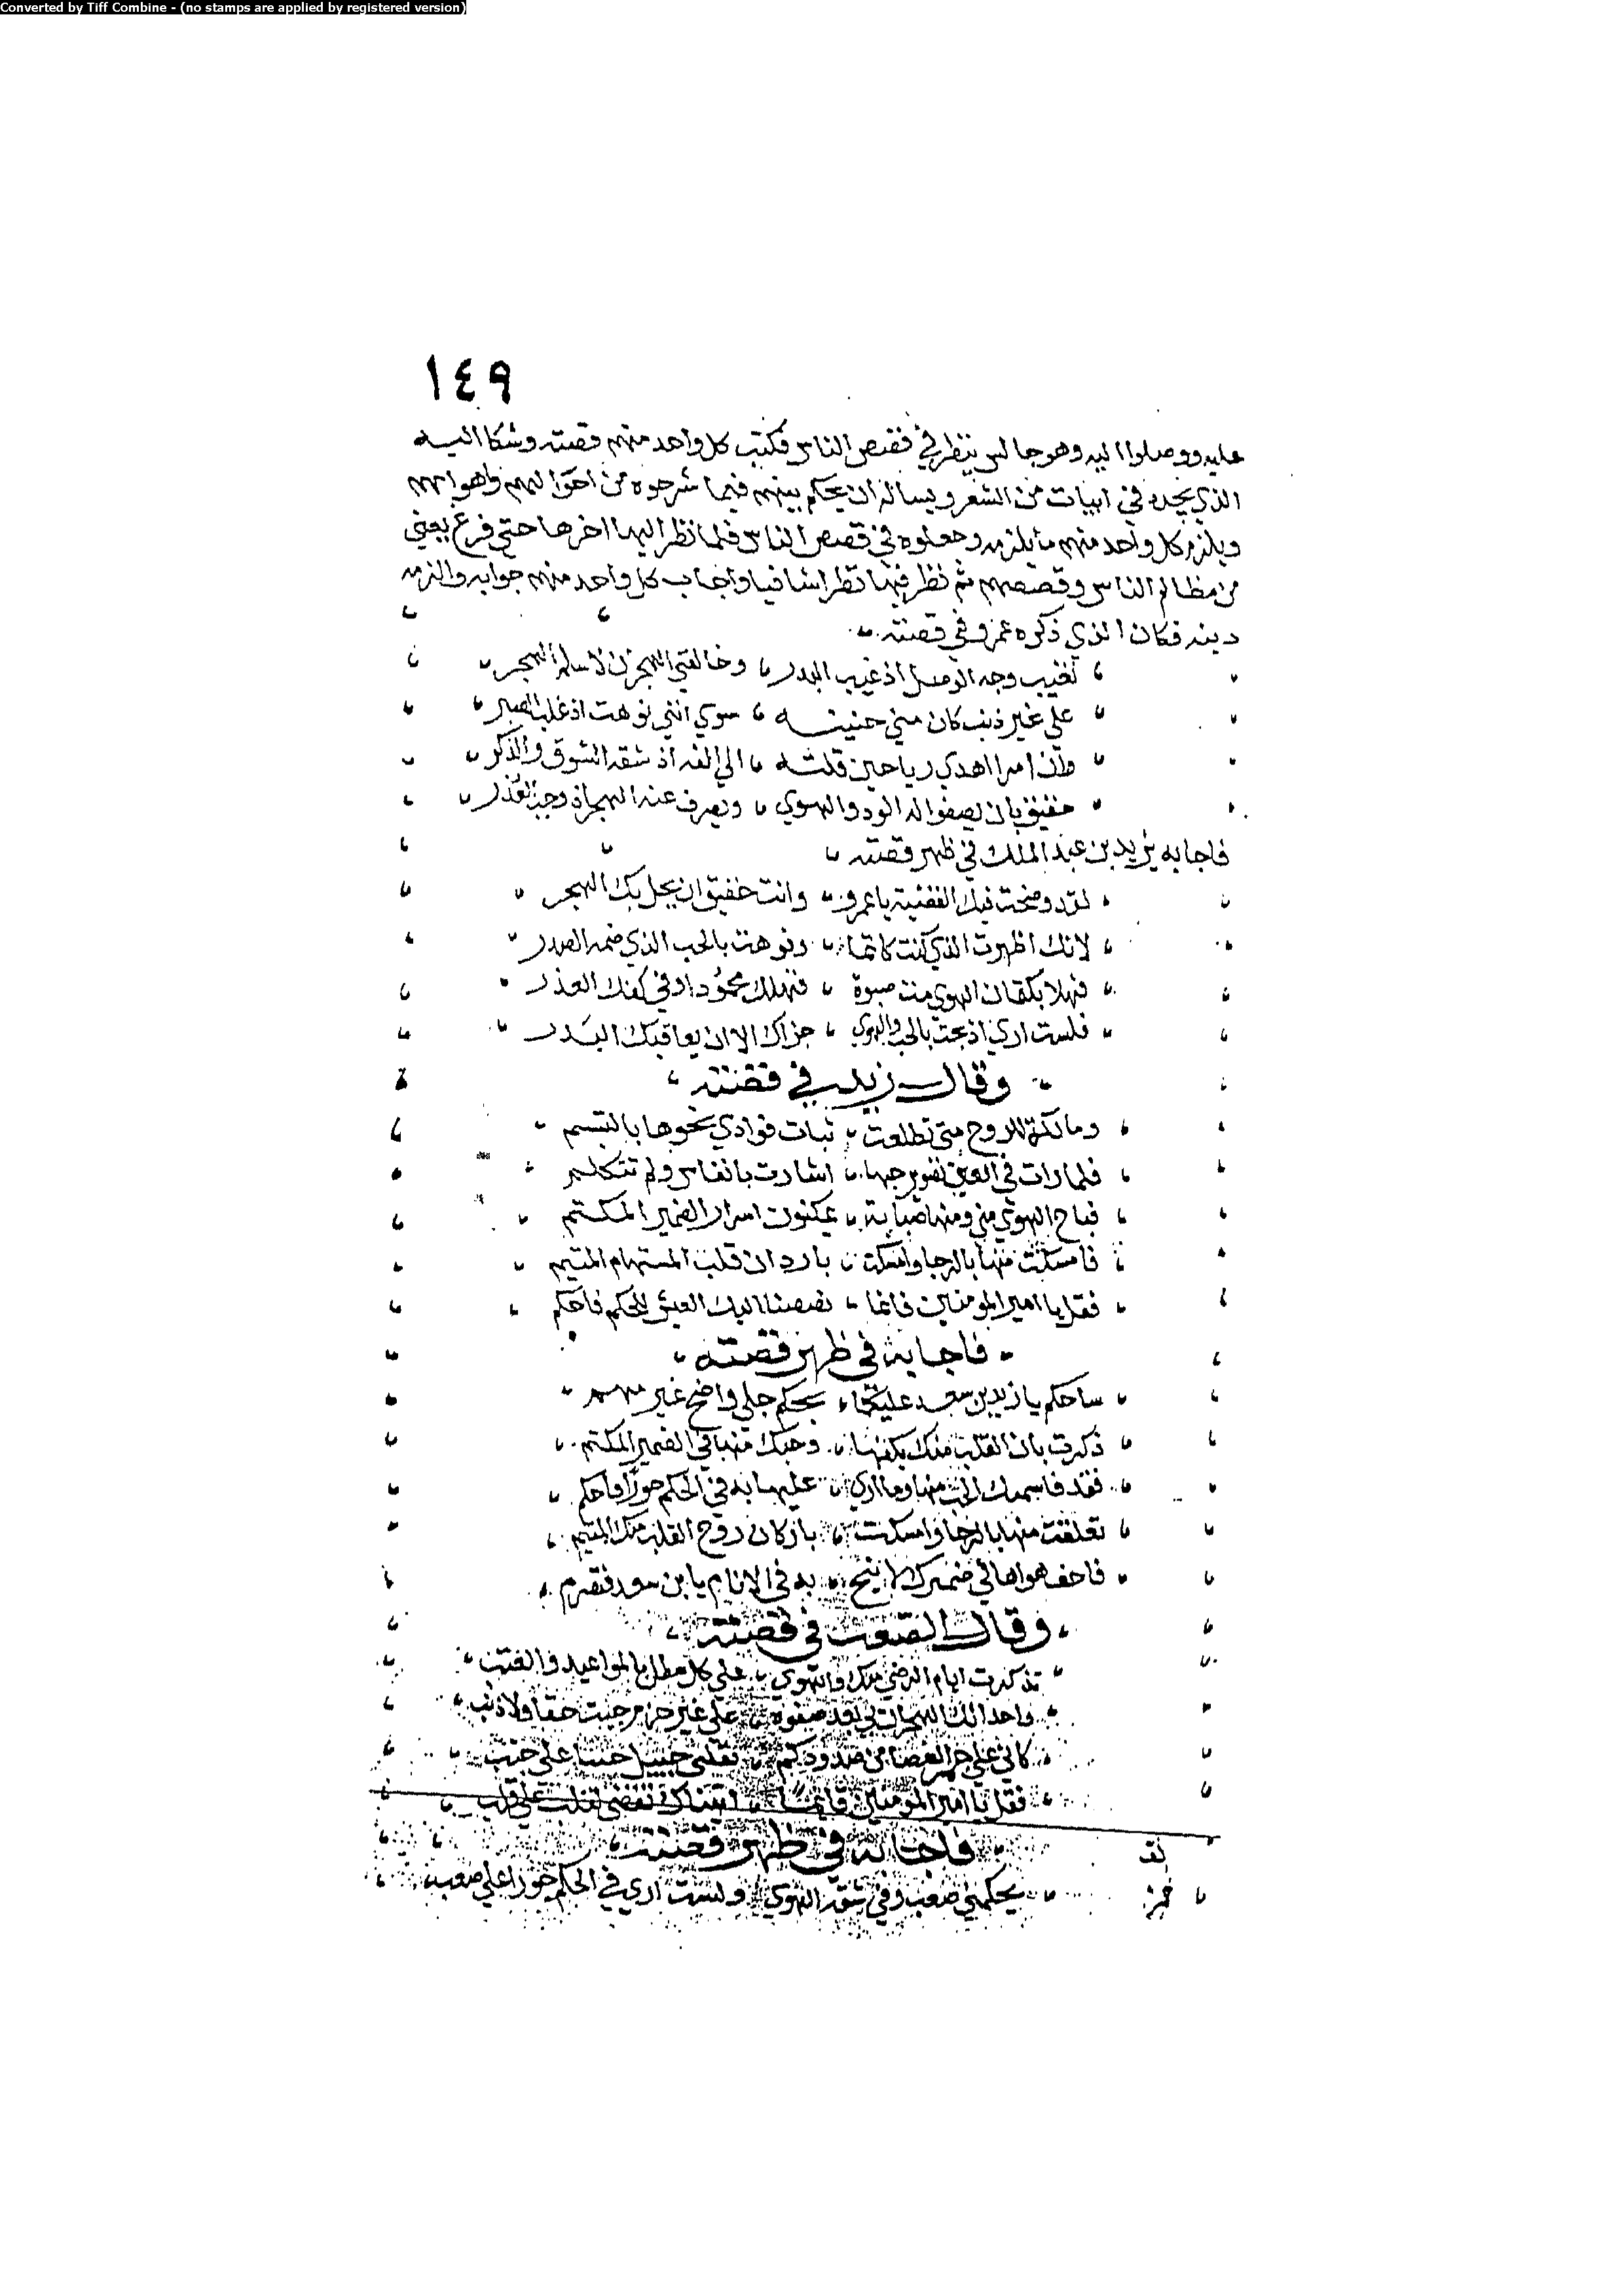 Converted by Tiff Combine - (no stamps are applied by registered version)
١٤٩
عليه ووصلوا اليه وهو جالس ينظر في قصص الناس فكتب كل واحد منهم قصته وشكا اليه
الذي يجده في ابيات من الشعر ويساله ان يحكم بينهم فيما شرحوه من احوالهم واهوائهم
ويلزم كل واحد منهم ما يلزمه وجعلوه في قصص الناس فلما نظر اليها اخرها حتى فرغ يعني
من مظالم الناس وقصصهم ثم نظر فيها نظرا شافيا واجاب كل واحد منهم جوابه والزمه
دينه فكان الذي ذكره عمرو في قصته
تغيب وجه الوصل اذ غيب البدر وخالفني الهجران لا سلم الهجر
على غير ذنب كان مني جنيته سوي انني نوهت اذ غلب الصبر
وان امرا اهدي رياحين قلبه الي الفه اذ شقه الشوق والذكر
حقيق بان يصفوا له الود والهوي ويصرف عنه الهجر اذ وجب العذر
فاجابه يزيد بن عبد الملك في ظهر قصته
لقد وضحت فيك القضية يا عمرو وانت حقيق ان يحل بك الهجر
لانك اظهرت الذي كنت كاتما ونوهت بالحب الذي ضمه الصدر
فهلا بكتمان الهوي مت صبوة فتهلك محمودا وفي كفك العذر
فلست اري اذ بحت بالحب والهوي جزاك الا ان يعاقبك البدر
وقال زيد في قصته
ومالكة للروح مني تطلعت نبات فوادي نحوها بالتبسم
فلما رات في العين تصوير حبها اشارت بانفاس ولم تتكلم
فباح الهوي مني ومنها صبابة بمكنون اسرار الضمير المكتم
فامسكت منها بالرجا وامسكت باردان قلب المستهام المتيم
فقل يا امير المومنين فانما قصصنا اليك العيش للحكم فاحكم
فاجابه في ظهر قصته
ساحكم يا زيد بن سعد عليكما بحكم جلي واضح غير مبهم
ذكرت بان القلب منك بكفها وحبك منها في الضمير المكتم
فقد قاسمتك الحب منها وما اري عليها به في الحكم جورا فاحكم
تعلقت منها بالرجا وامسكت باركان روح القلب منك المتيم
فاحف هواها في ضميرك لا تبح به في الانام يا بن سعد فتصرم
وقال الصعب في قصته
تذكرت ايام الرضي منك والهوي على كل مطل بالمواعيد والعتب
واحدا لك الهجران لي بعد صفوه على غير جرم جنيت حقا ولا ذنب
كاني على جمر الغضا من صدودكم تقلبني جنبا على جنب
فقل يا امير المومنين فانما اتيناك تقضي
فاجابه في ظهر قصته
يحكمني صعب وفي شقه الهوي ولست اري في الحكم جورا علي صعب